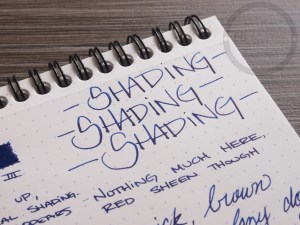 -SHADING-
-SHADING-
-SHADING-
III
UP,
AL SHADING.
PPEARS
NOTHING MUCH HERE,
RED SHEEN THOUGH
ck, brown